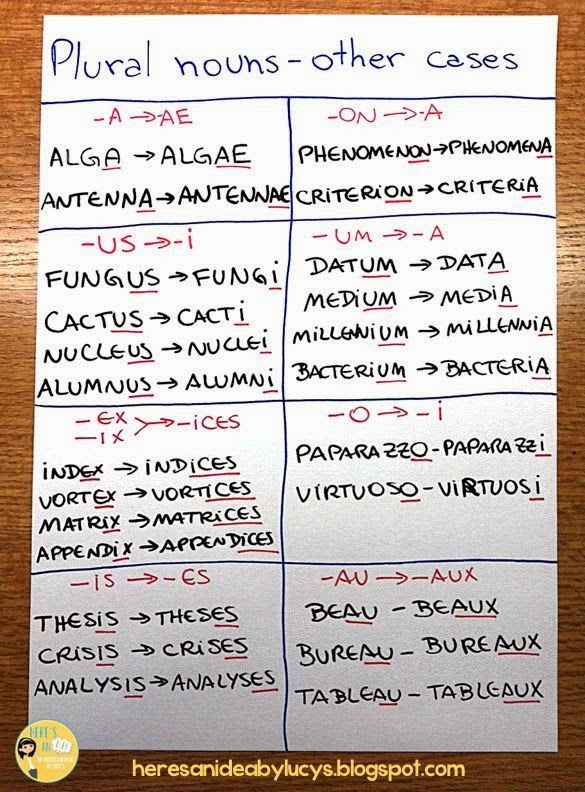 Plural nouns - other cases
-A → AE
ALGA → ALGAE
ANTENNA → ANTENNAE
-ON → -A
PHENOMENON → PHENOMENA
CRITERION → CRITERIA
-US → -i
FUNGUS → FUNGi
CACTUS → CACTi
NUCLEUS → NUCLEi
ALUMNUS → ALUMNi
-UM → -A
DATUM → DATA
MEDIUM → MEDIA
MILLENNIUM → MILLENNIA
BACTERIUM → BACTERIA
-EX
-IX → -iCES
iNDEX → iNDiCES
VORTEX → VORTiCES
MATRIX → MATRiCES
APPENDiX → APPENDiCES
-O → -i
PAPARAZZO - PAPARAZZi
ViRTUOSO - ViRTUOSi
-iS → -ES
THESiS → THESES
CRiSiS → CRiSES
ANALYSiS → ANALYSES
-AU → -AUX
BEAU - BEAUX
BUREAU - BUREAUX
TABLEAU - TABLEAUX
HERE'S
AN IDEA
heresanideabylucys.blogspot.com